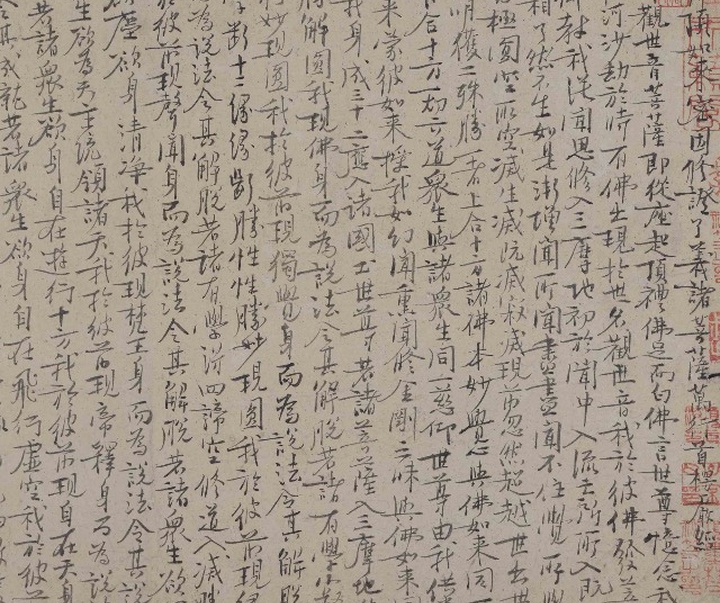 佛如來密因修證了義諸菩薩萬行首楞嚴經
觀世音菩薩即從座起頂禮佛足而白佛言世尊憶念我
河沙劫於時有佛出現於世名觀世音我於彼佛發菩
教我從聞思修入三摩地初於聞中入流亡所所入既
相了然不生如是漸增聞所聞盡盡聞不住覺所覺
極圓空所空滅生滅既滅寂滅現前忽然超越世出世
明獲二殊勝一者上合十方諸佛本妙覺心與佛如來同一
合十方一切六道衆生與諸衆生同一慈仰世尊由我供
來蒙彼如來授我如幻聞熏聞修金剛三昧與佛如來同
我身成三十二應入諸國土世尊若諸菩薩入三摩地
勝解圓我現佛身而為說法令其解脫若諸有學寂
行妙現圓我於彼前現獨覺身而為說法令其解脫
學斷十二緣緣斷勝性性勝妙現圓我於彼前現緣
為說法令其解脫若諸有學得四諦空修道入滅勝
於彼前現聲聞身而為說法令其解脫若諸衆生欲
塵欲身清淨我於彼現梵王身而為說法令其
生欲為天主統領諸天我於彼前現帝釋身而為說
若諸衆生欲身自在遊行十方我於彼前現自在天身
令其成就若諸衆生欲身自在飛行虛空我於彼前